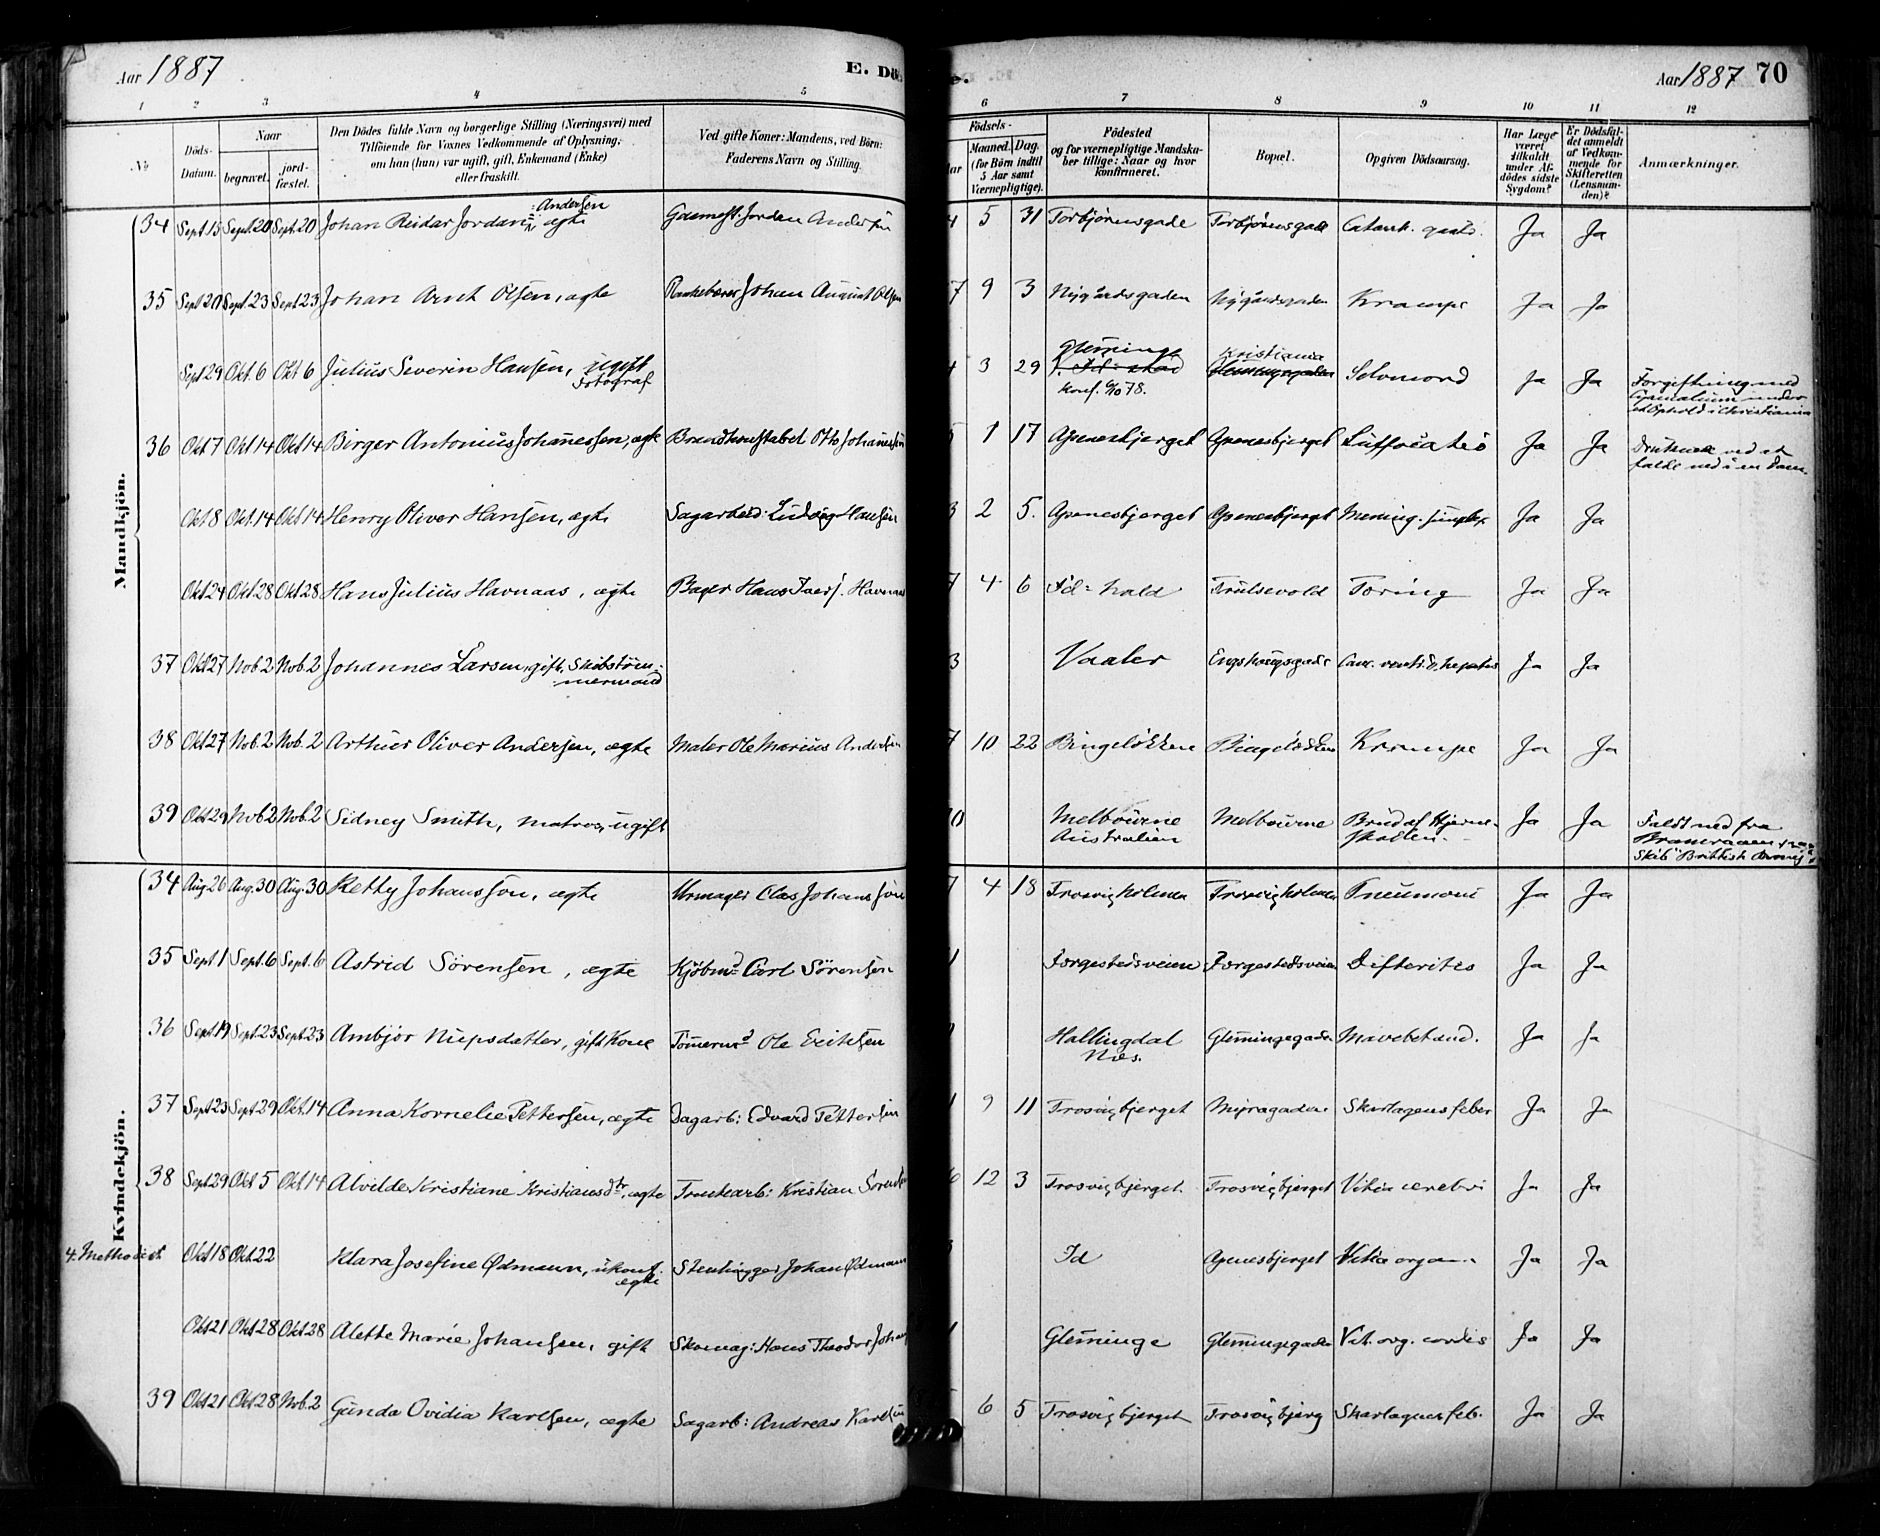 Aar 1887
E. Dö
Aar 1887 70
1 2 3 4 5 6 7 8 9 10 11 12
No
Döds-Datum.
Naar
begravet.
jord-fæstet.
Den Dödes fulde Navn og borgerlige Stilling (Næringsvei) med
Tilföiende for Voxnes Vedkommende af Oplysning,
om han (hun) var ugift, gift, Enkemand (Enke)
eller fraskilt.
Ved gifte Koner: Mandens, ved Börn:
Faderens Navn og Stilling.
Födsels-
Maaned. Dag.
(for Börn indtil
5 Aar samt
Værnepligtige).
Födested
og for værnepligtige Mandska-
ber tillige: Naar og hvor
konfirmeret.
Bopæl.
Opgiven Dödsaarsag.
Har Læge
været
tilkaldt
under Af-
dödes sidste
Sygdom?
Er Dödsfal-
det anmeldt
af Vedkom-
mende for
Skifteretten
(Lensman-
den)?
Anmærkninger.
Mandkjön.
34 Sept 15 Sept. 20 Sept. 20 Johan Reidar Jordan Andersen ægte Jordan Andersen 4 5 31 Torbjørnsgade Torbjørnsgade Catarrh. Ja Ja
35 Sept 20 Sept. 23 Sept 23 Johan Arnt Olsen, ægte Johan August Olsen 7 9 3 Nygårdsgaden Nygårdsgaden Krampe Ja Ja
Sept 29 Okt. 6 Okt 6 Julius Severin Hansen, ugift Fotograf 4 3 29 Glemminge konf. 6/10 78. Kristiania Selvmord Ja Ja Forgiftning med Cyankalium under et Ophold i Christiania
36 Okt 7 Okt 14 Okt 14 Birger Antonius Johannessen, ægte Brandkonstabel Otto Johannessen 5 1 17 Apenesbjerget Apenesbjerget Suffocatio Ja Ja Druknede ved at falde ned i en Dam.
Okt 8 Okt. 14 Okt 14 Henry Oliver Hansen, ægte Sagarbeid: Ludvig Hansen 3 2 5. Apenesbjerget Apenesbjerget Mening. simplex Ja Ja
Okt 24 Okt 28 Okt 28 Hans Julius Havnaas, ægte Bager Hans Havnaas 7 4 6 Fd: hald Trulsevold Tæring Ja Ja
37 Okt 27 Nob. 2 Nob. 2 Johannes Larsen, gift, Skibstømmermand 3 Vaaler Engehaugsgade Canc. ventr. & hepatis Ja Ja
38 Okt 27 Nob. 2 Nob. 2 Arthur Oliver Andersen, ægte Maler Ole Marius Andersen 7 10 22 Bingeløkken Bingeløkken Krampe Ja Ja
39 Okt 29 Nob 2 Nob. 2 Sidney Smith, matros, ugift 0 Melbourne Australien Melbourne Brud af Hjerneskallen. Ja Ja Faldt ned fra Skib "Brittish Army"
Kvindekjön.
34 Aug. 26 Aug. 30 Aug. 30 Ketty Johansson, ægte Urmager Clas Johansson 7 4 18 Trosvigholmen Trosvigholmen Pneumoni Ja Ja
35 Sept. 1 Sept. 6 Sept. 6 Astrid Sørensen, ægte Kjøbmd Carl Sørensen 1 Færgestedsveien Færgestedsveien Difteritis Ja Ja
36 Sept. 19 Sept. 23 Sept. 23 Ambjør Nupsdatter, gift Kone Tømermd Ole Erichsen Hallingdal Næs. Glemmingegaden Mavebetænd. Ja Ja
37 Sept 23 Sept 29 Okt. 14 Anna Kornelie Pettersen, ægte Dagarb: Edvard Pettersen 1 9 11 Trosvigbjerget Skarlagensfeber Ja Ja
38 Sept 29 Okt 5 Okt 14 Alvilde Kristiane Kristiansdtr, ægte Kristian Sørensen 6 12 3 Trosvigbjerget Trosvigbjerget Vitia cerebri Ja Ja
4. Methodist Okt 18 Okt. 22 Klara Josefine Ødmann, ukonf. ægte Stenhugger Johan Ødmann Id Apenesbjerget Vitia organ. Ja Ja
Okt 21 Okt 28 Okt 28 Alette Marie Johansen, gift Skomag: Hans Theodor Johan 1 Glemminge Glemmingegaden Vit. org. cordis Ja Ja
39 Okt 21 Okt 28 Nob. 2 Gunda Ovidia Karlsen, ægte Sagarb: Andreas Karlsen 6 5 Trosvigbjerget Trosvigbjerg Skarlagensfeb. Ja Ja